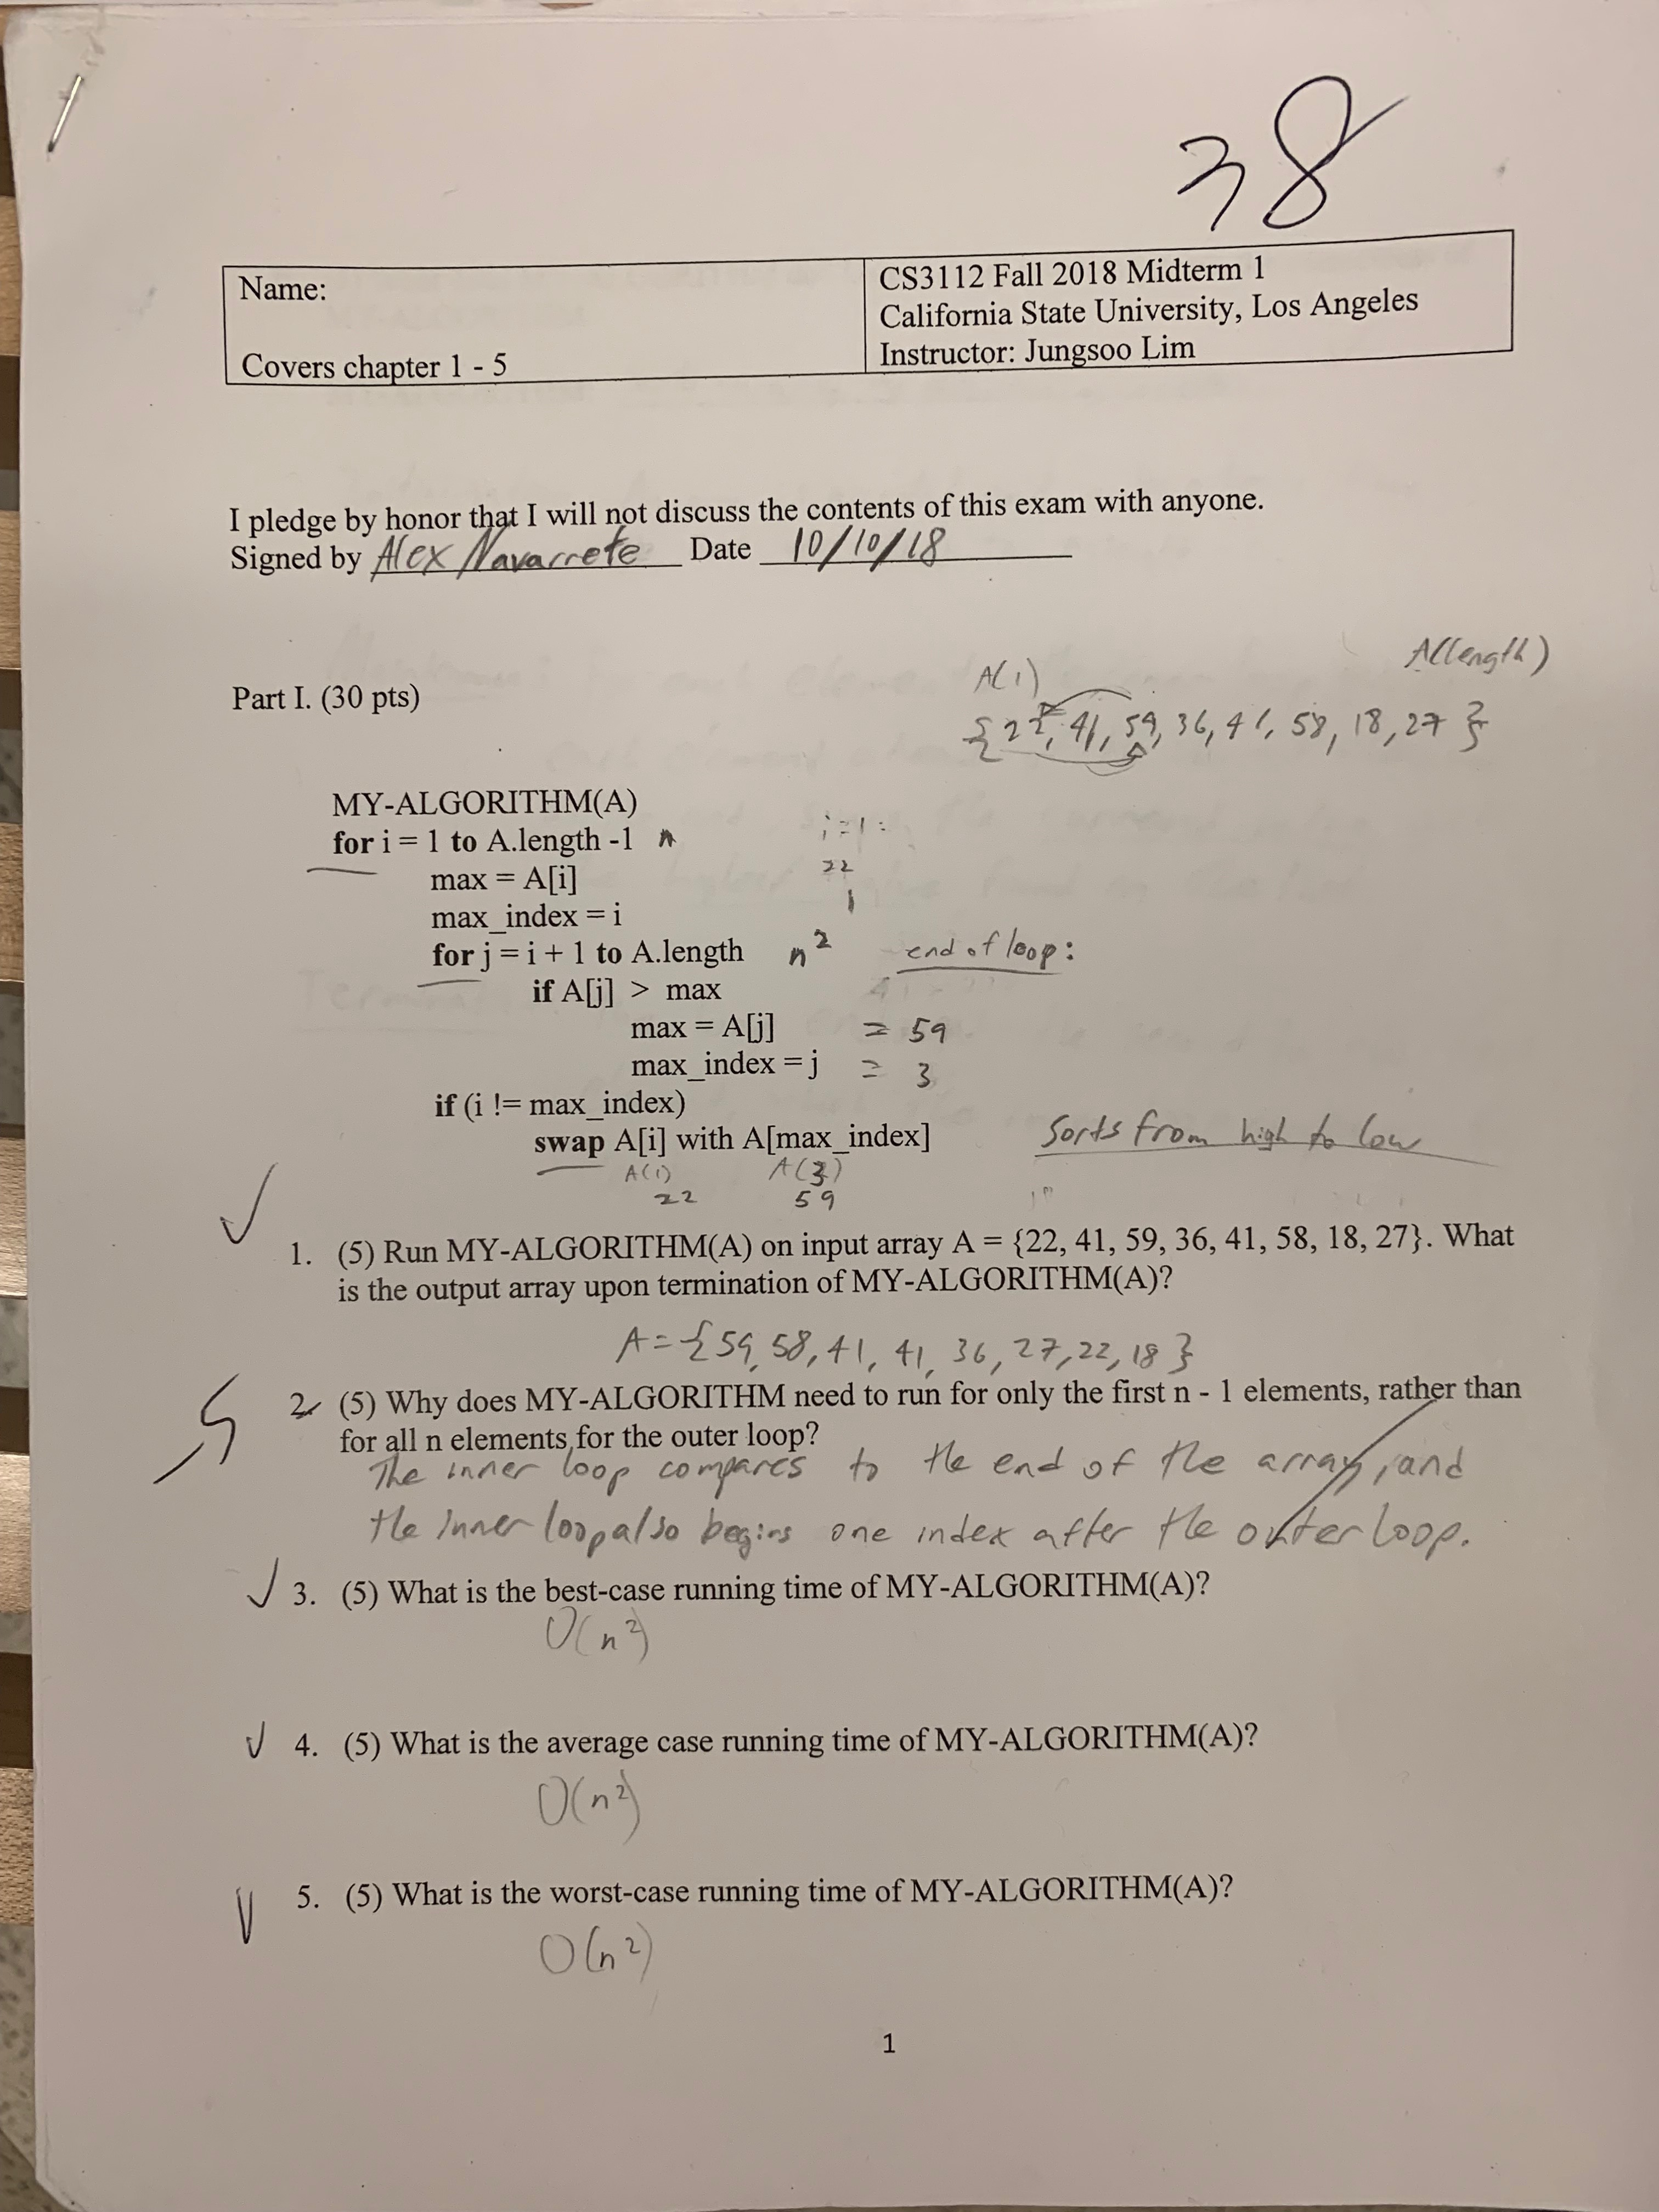 38
Name:
Covers chapter 1 - 5
CS3112 Fall 2018 Midterm 1
California State University, Los Angeles
Instructor: Jungsoo Lim
I pledge by honor that I will not discuss the contents of this exam with anyone.
Signed by Alex Navarrete Date 10/10/18
A(1) A(length)
Part I. (30 pts)
{22, 41, 59, 36, 41, 58, 18, 27}
MY-ALGORITHM(A)
for i = 1 to A.length -1 n i=1:
max = A[i] 22
max_index = i 1
for j = i + 1 to A.length n² end of loop:
if A[j] > max
max = A[j] = 59
max_index = j = 3
if (i != max_index)
swap A[i] with A[max_index] Sorts from high to low
A(1) A(3)
22 59
1. (5) Run MY-ALGORITHM(A) on input array A = {22, 41, 59, 36, 41, 58, 18, 27}. What
is the output array upon termination of MY-ALGORITHM(A)?
A = {59, 58, 41, 41, 36, 27, 22, 18}
2. (5) Why does MY-ALGORITHM need to run for only the first n - 1 elements, rather than
for all n elements for the outer loop?
The inner loop compares to the end of the array, and
the inner loop also begins one index after the outer loop.
3. (5) What is the best-case running time of MY-ALGORITHM(A)?
O(n²)
4. (5) What is the average case running time of MY-ALGORITHM(A)?
O(n²)
5. (5) What is the worst-case running time of MY-ALGORITHM(A)?
O(n²)
1